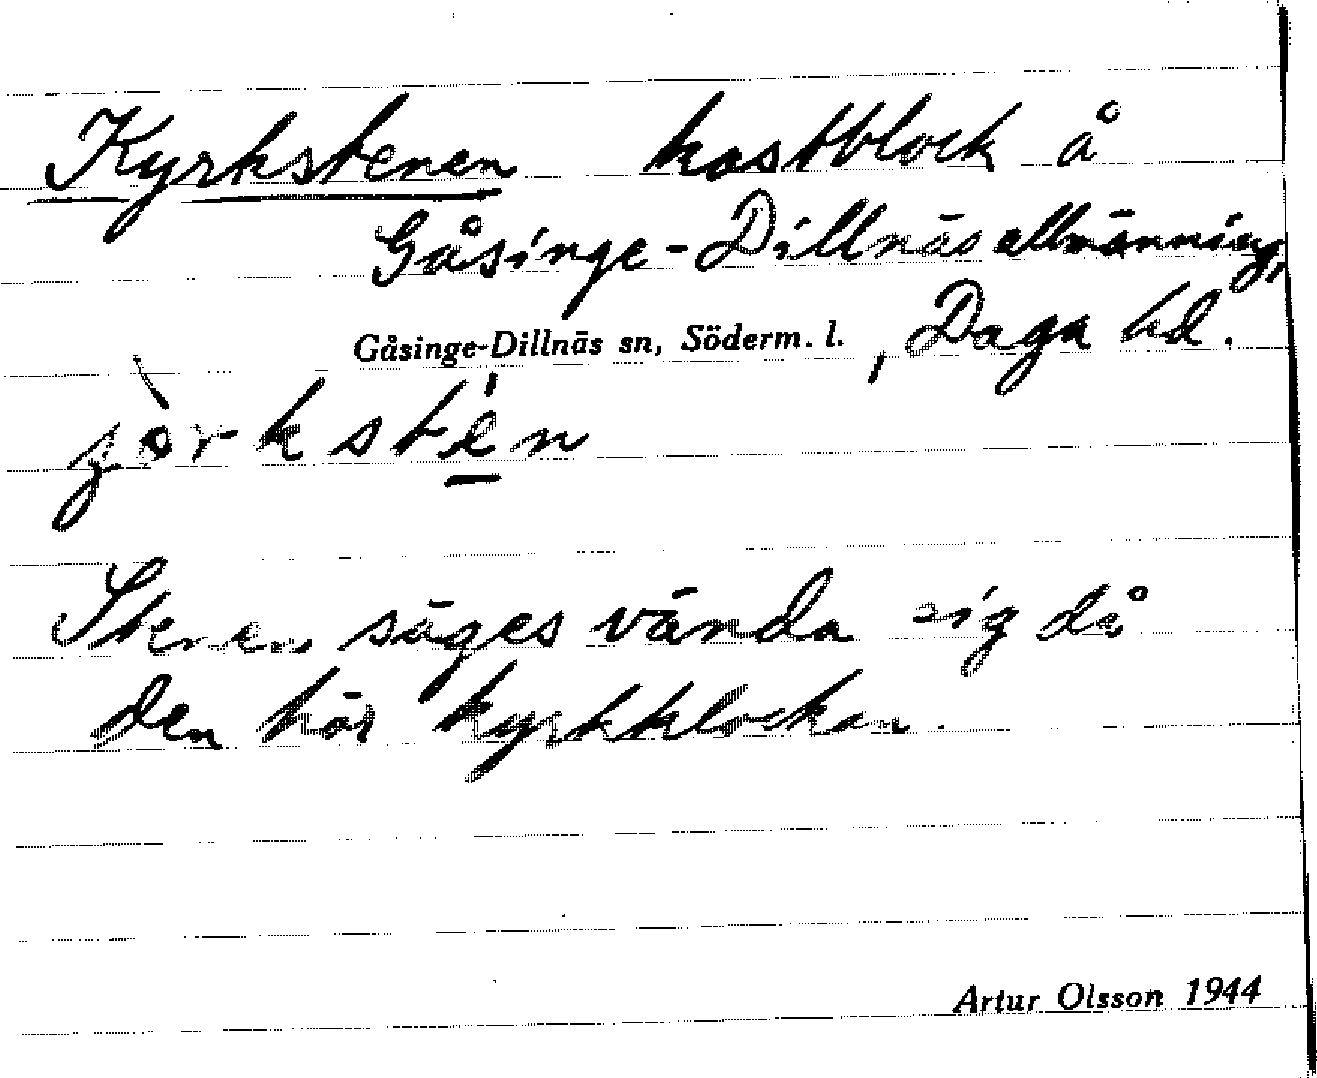 Kyrkstenen kastblock å
Gåsinge-Dillnäs allmänning,
Gåsinge-Dillnäs sn, Söderm. l. , Daga hd.
Stenen säges vända sig då
den hör kyrkklockan.
Artur Olsson 1944